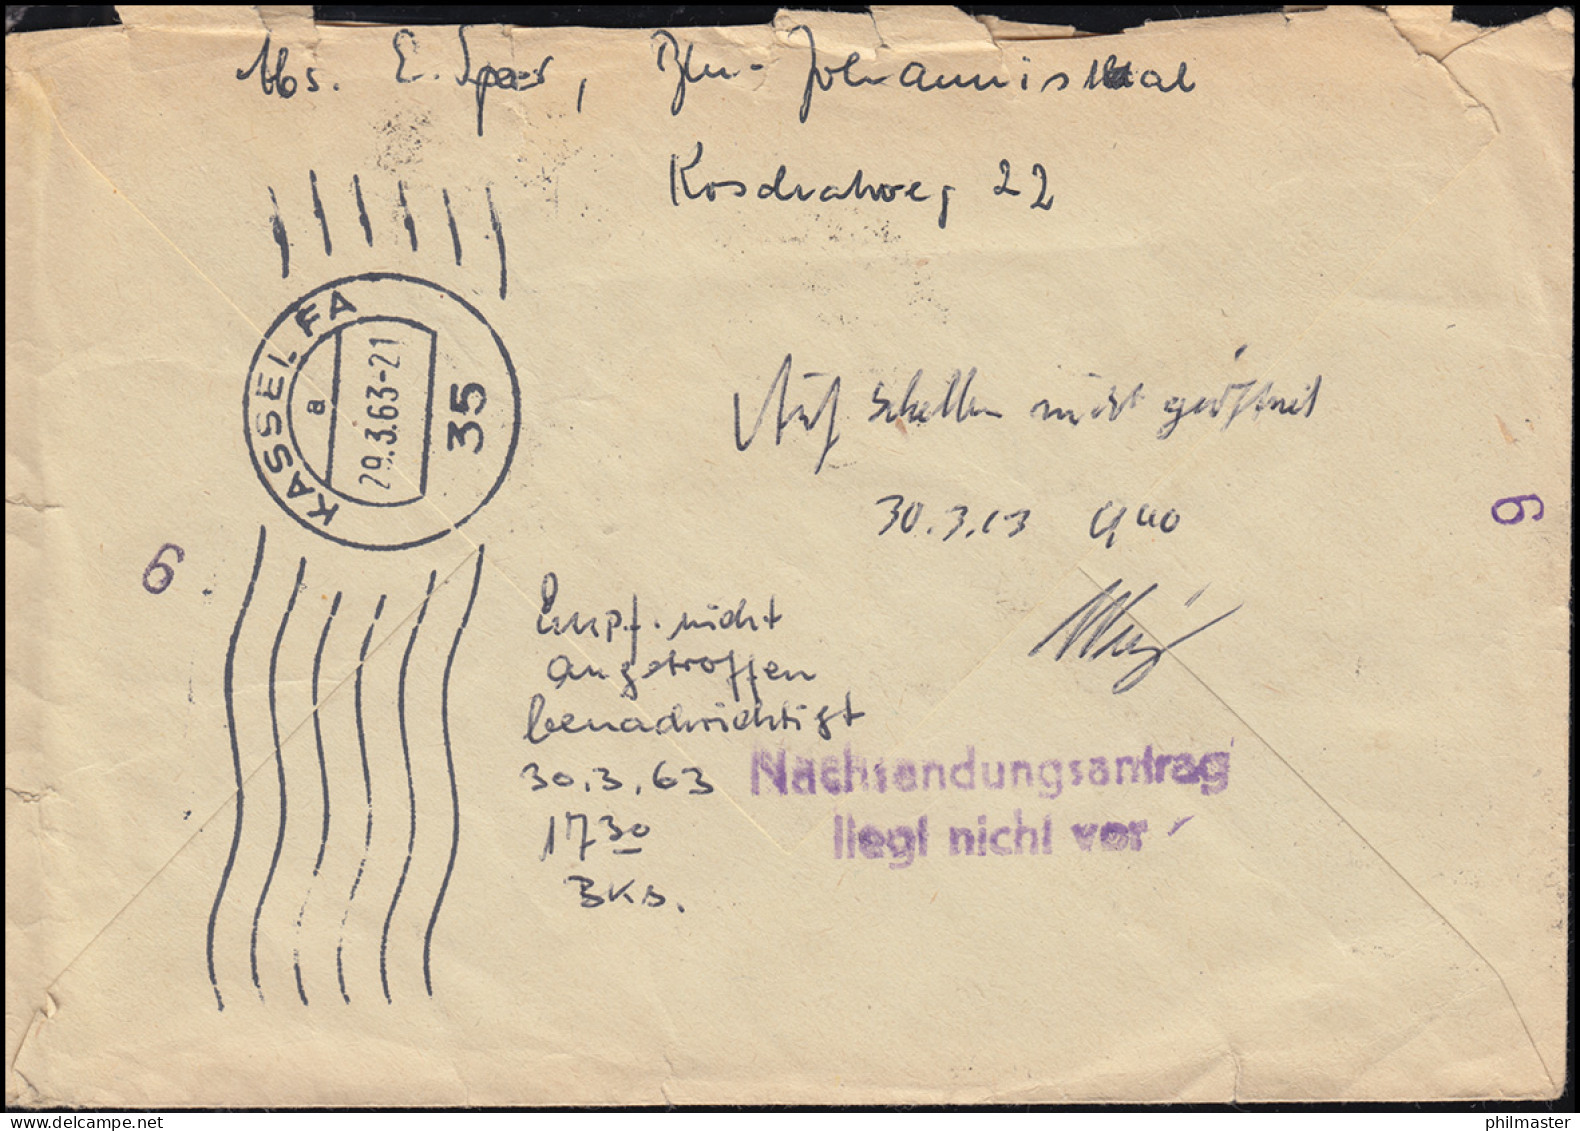 Abs. E. Spar, Bln-Johannisthal
Kosdratweg 22
KASSEL FA
a
29.3.63-21
35
Auf Schellen nicht geöffnet
30.3.63 9 40
6
6
Empf. nicht
angetroffen
benachrichtigt
30.3.63
17 30
Bks.
Nachsendungsantrag
liegt nicht vor
philmaster